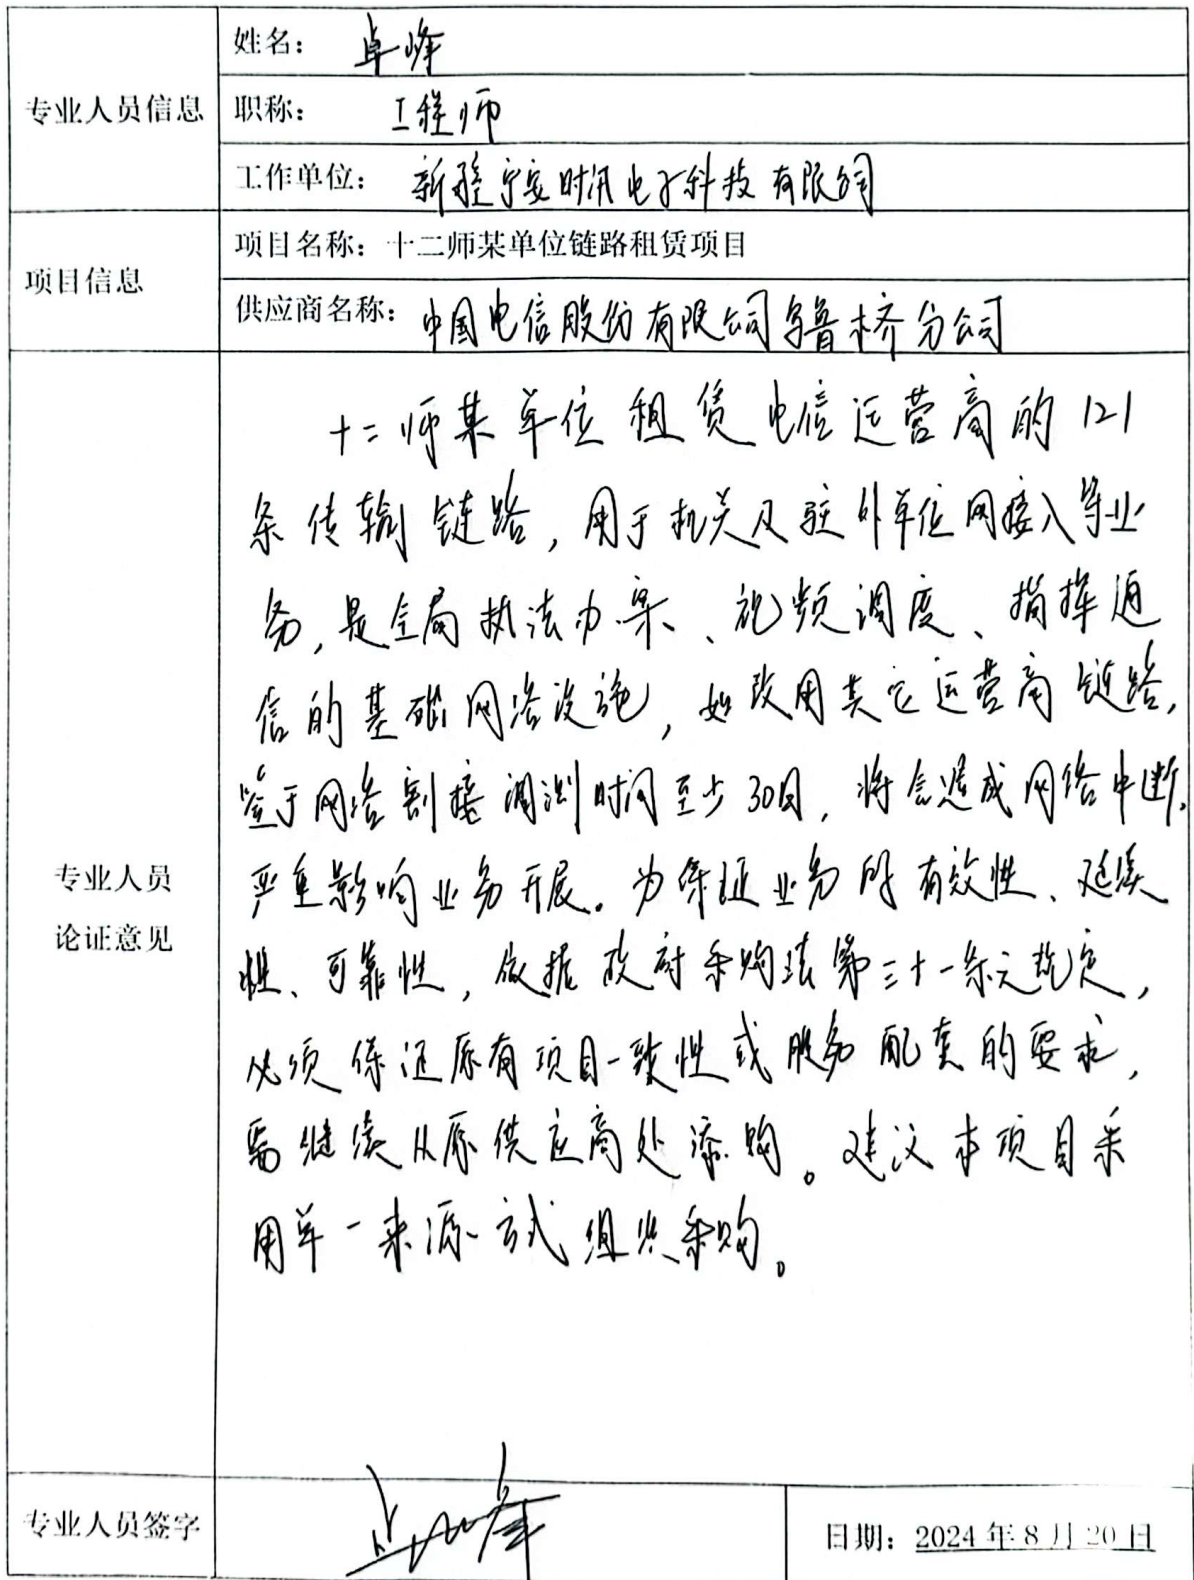 专业人员信息
姓名： 卓峰
职称： 工程师
工作单位： 新疆宁安时讯电子科技有限公司
项目信息
项目名称：十二师某单位链路租赁项目
供应商名称： 中国电信股份有限公司乌鲁木齐分公司
专业人员
论证意见
十二师某单位租赁电信运营商的121
条传输链路，用于机关及驻外单位网接入等业
务，是全局执法办案、视频调度、指挥通
信的基础网络设施，如改用其它运营商链路，
鉴于网络割接调测时间至少30日，将会造成网络中断，
严重影响业务开展。为保证业务的有效性、延续
性、可靠性，依据政府采购法第三十一条之规定，
必须保证原有项目一致性或服务配套的要求，
需继续从原供应商处添购。建议本项目采
用单一来源方式组织采购。
专业人员签字
卓峰
日期：2024年8月20日